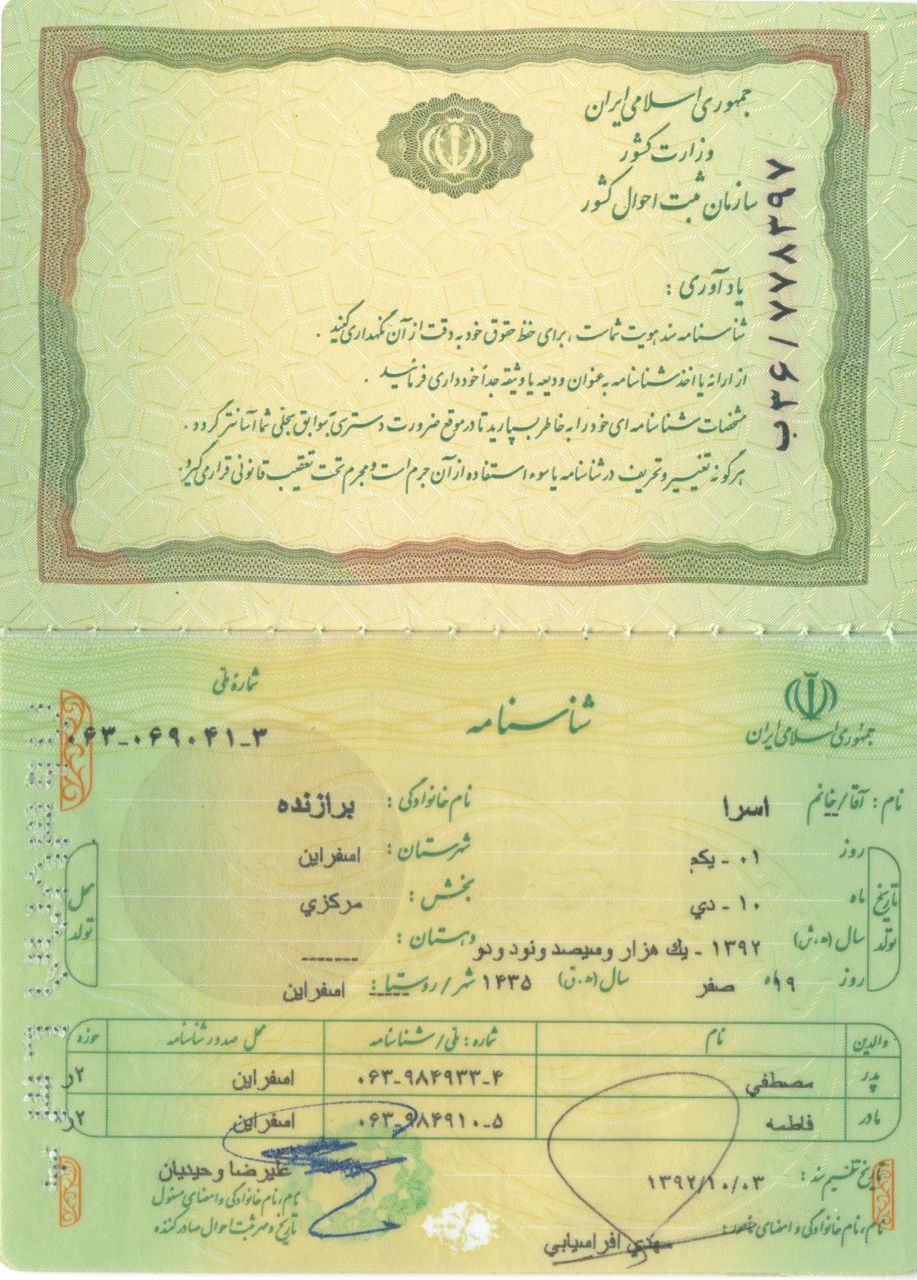 جمهوری اسلامی ایران
وزارت کشور
سازمان ثبت احوال کشور
ب۳۶/۷۷۸۳۹۷
یادآوری :
شناسنامه سند هویت شماست ، برای حفظ حقوق خود به دقت از آن نگهداری کنید .
از ارائه یا اخذ شناسنامه به عنوان ودیعه یا وثیقه جداً خودداری فرمائید .
مشخصات شناسنامه ای خود را به خاطر بسپارید تا در موقع ضرورت دسترسی بسوابق سجلی شما آسانتر گردد .
هرگونه تغییر و تحریف در شناسنامه یا سوء استفاده از آن جرم است و مجرم تحت تعقیب قانونی قرار می گیرد.
جمهوری اسلامی ایران
شناسنامه
شمارهٔ ملی
۰۶۳-۰۶۹۰۴۱-۳
نام : آقا/خانم اسرا نام خانوادگی : برازنده
تاریخ تولد
روز ۰۱ - یکم شهرستان : اسفراین
ماه ۱۰ - دي بخش : مرکزي
سال (ه.ش) ۱۳۹۲ - یك هزار وسیصد ونود ودو دهستان : -------
روز ۱۹ ماه صفر سال (ه.ق) ۱۴۳۵ شهر/روستا : اسفراین
محل تولد
والدین نام شماره : ملی/شناسنامه محل صدور شناسنامه حوزه
پدر مصطفي ۰۶۳-۹۸۴۹۳۳-۴ اسفراین ۲ر
مادر فاطمه ۰۶۳-۹۸۴۹۱۰-۵ اسفراین ۲ر
تاریخ تنظیم سند : ۱۳۹۲/۱۰/۰۳
علیرضا وحیدیان
نام، نام خانوادگی و امضای مسئول
تاریخ و مهر ثبت احوال صادر کننده
نام، نام خانوادگی و امضای مأمور :
مهدي افراسیابي